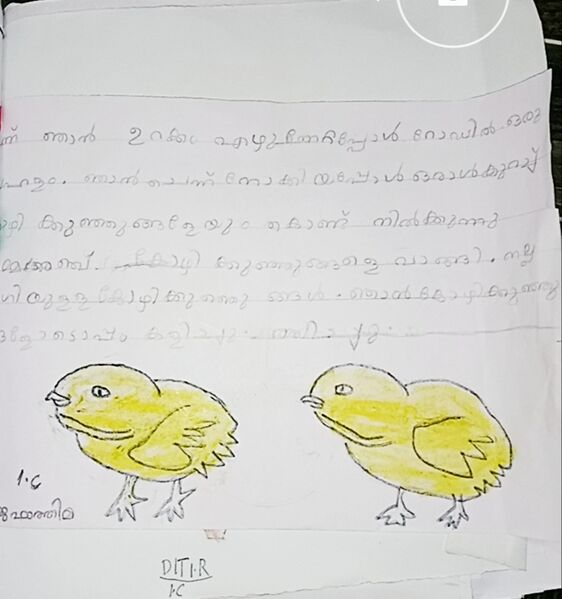 ന്ന് ഞാൻ ഉറക്കം എഴുന്നേറ്റപ്പോൾ റോഡിൽ ഒരു
ഹളം. ഞാൻ ചെന്ന് നോക്കിയപ്പോൾ ഒരാൾ കുറച്ച്
ഴി ക്കുഞ്ഞുങ്ങളേയും കൊണ്ട് നിൽക്കുന്നു
കോഴി ക്കുഞ്ഞുങ്ങളെ വാങ്ങി. നല്ല
ഗിയുള്ള കോഴിക്കുഞ്ഞു ങ്ങൾ. ഞാൻ കോഴിക്കുഞ്ഞു
ളോടൊപ്പം കളിച്ചു.
1.C
DITI.R
1.C